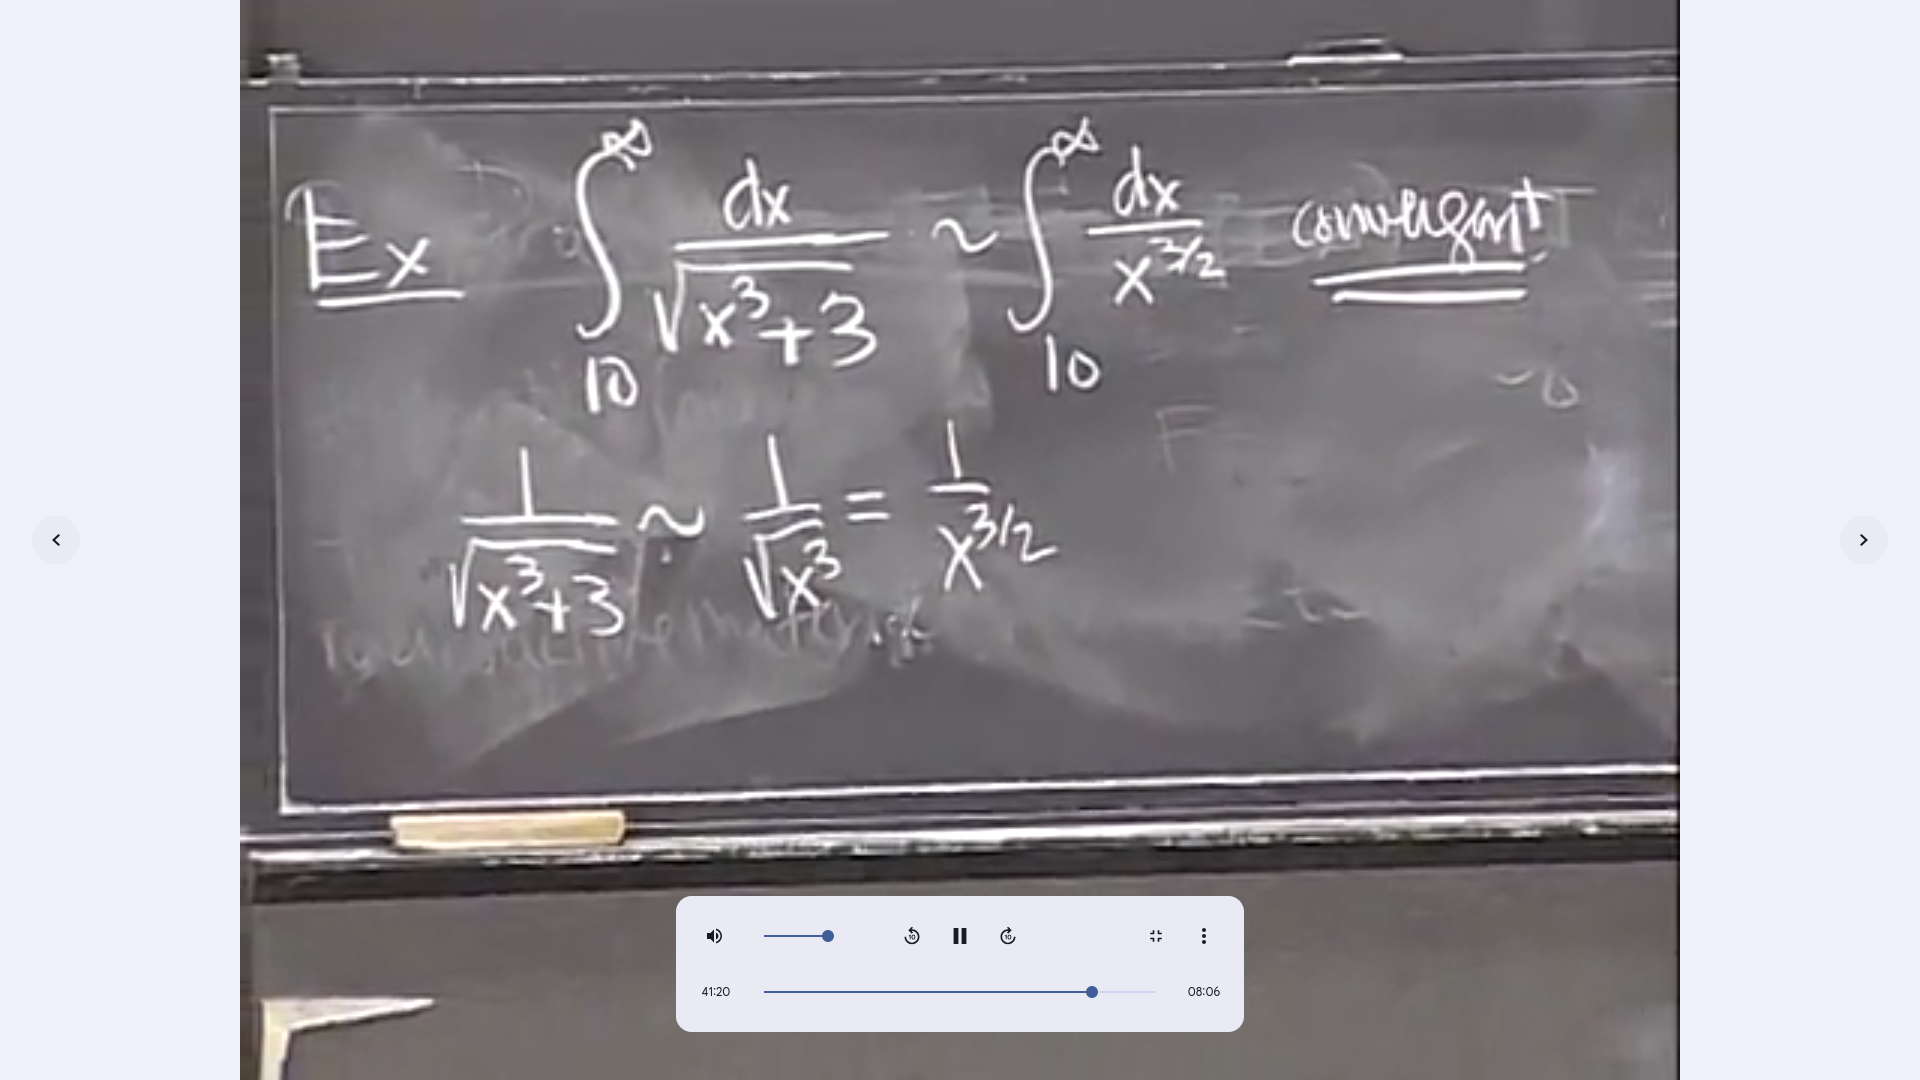 Ex ∫₁₀^∞ dx/√(x³+3) ~ ∫₁₀^∞ dx/x^(3/2) convergent
1/√(x³+3) ~ 1/√x³ = 1/x^(3/2)
41:20 08:06